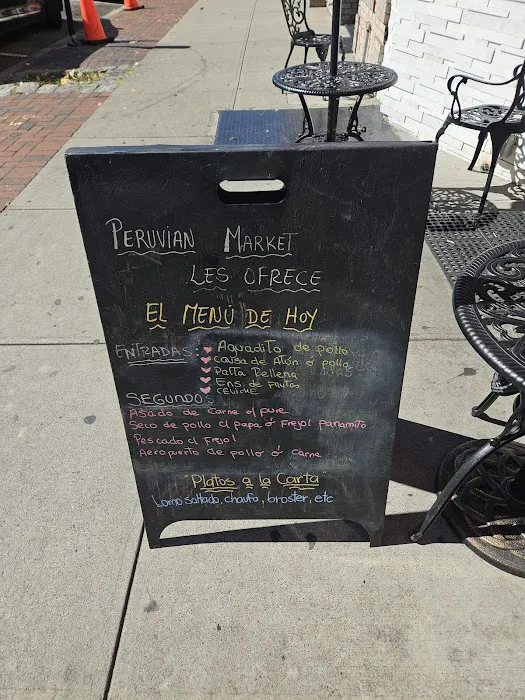 PERUVIAN MARKET
LES OFRECE
EL MENÚ DE HOY
ENTRADAS: Aguadito de pollo
causa de Atún ó pollo
Palta Rellena
Ens. de Frutas
CEVICHE
SEGUNDOS
Asado de carne c/ pure
Seco de pollo c/ papa ó Frejol panamito
Pescado c/ Frejol
Aeropuerto de pollo ó carne
Platos a la Carta
Lomo saltado, chaufa, broster, etc